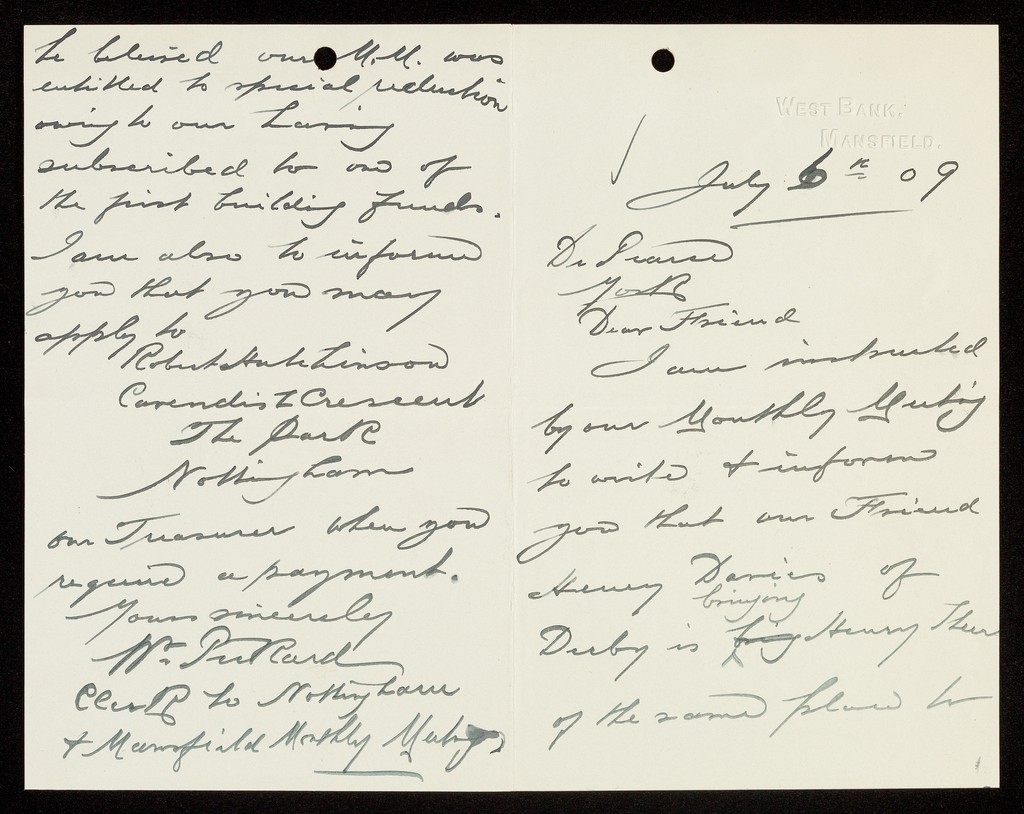 WEST BANK.
MANSFIELD.
July 6th 09
Dr Pearce
York
Dear Friend
I am instructed
by our Monthly Meeting
to write & inform
you that our Friend
Henry Davies of
bringing
Derby is Henry
of the same place to
he blieved our M.M. was
entitled to special reduction
owing to our having
subscribed to one of
the first building funds.
I am also to inform
you that you may
apply to
Robert Hutchinson
Cavendish Crescent
The Park
Nottingham
our Treasurer when you
require a payment.
Yours sincerely
Wm Pickard
Clerk to Nottingham
& Mansfield Monthly Meeting